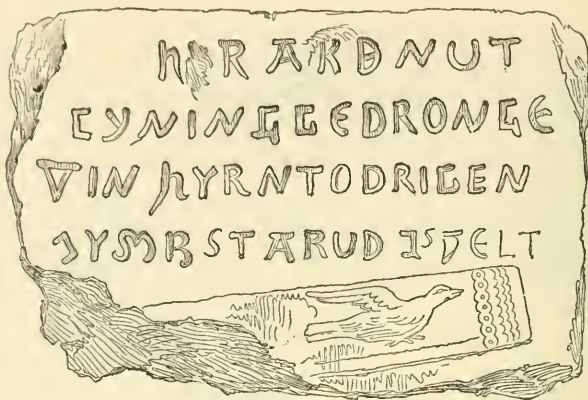 H RAKÐNUT
CYNINGGEDRONGE
VIN HYRNTODRIGEN
JYMBSTARUD